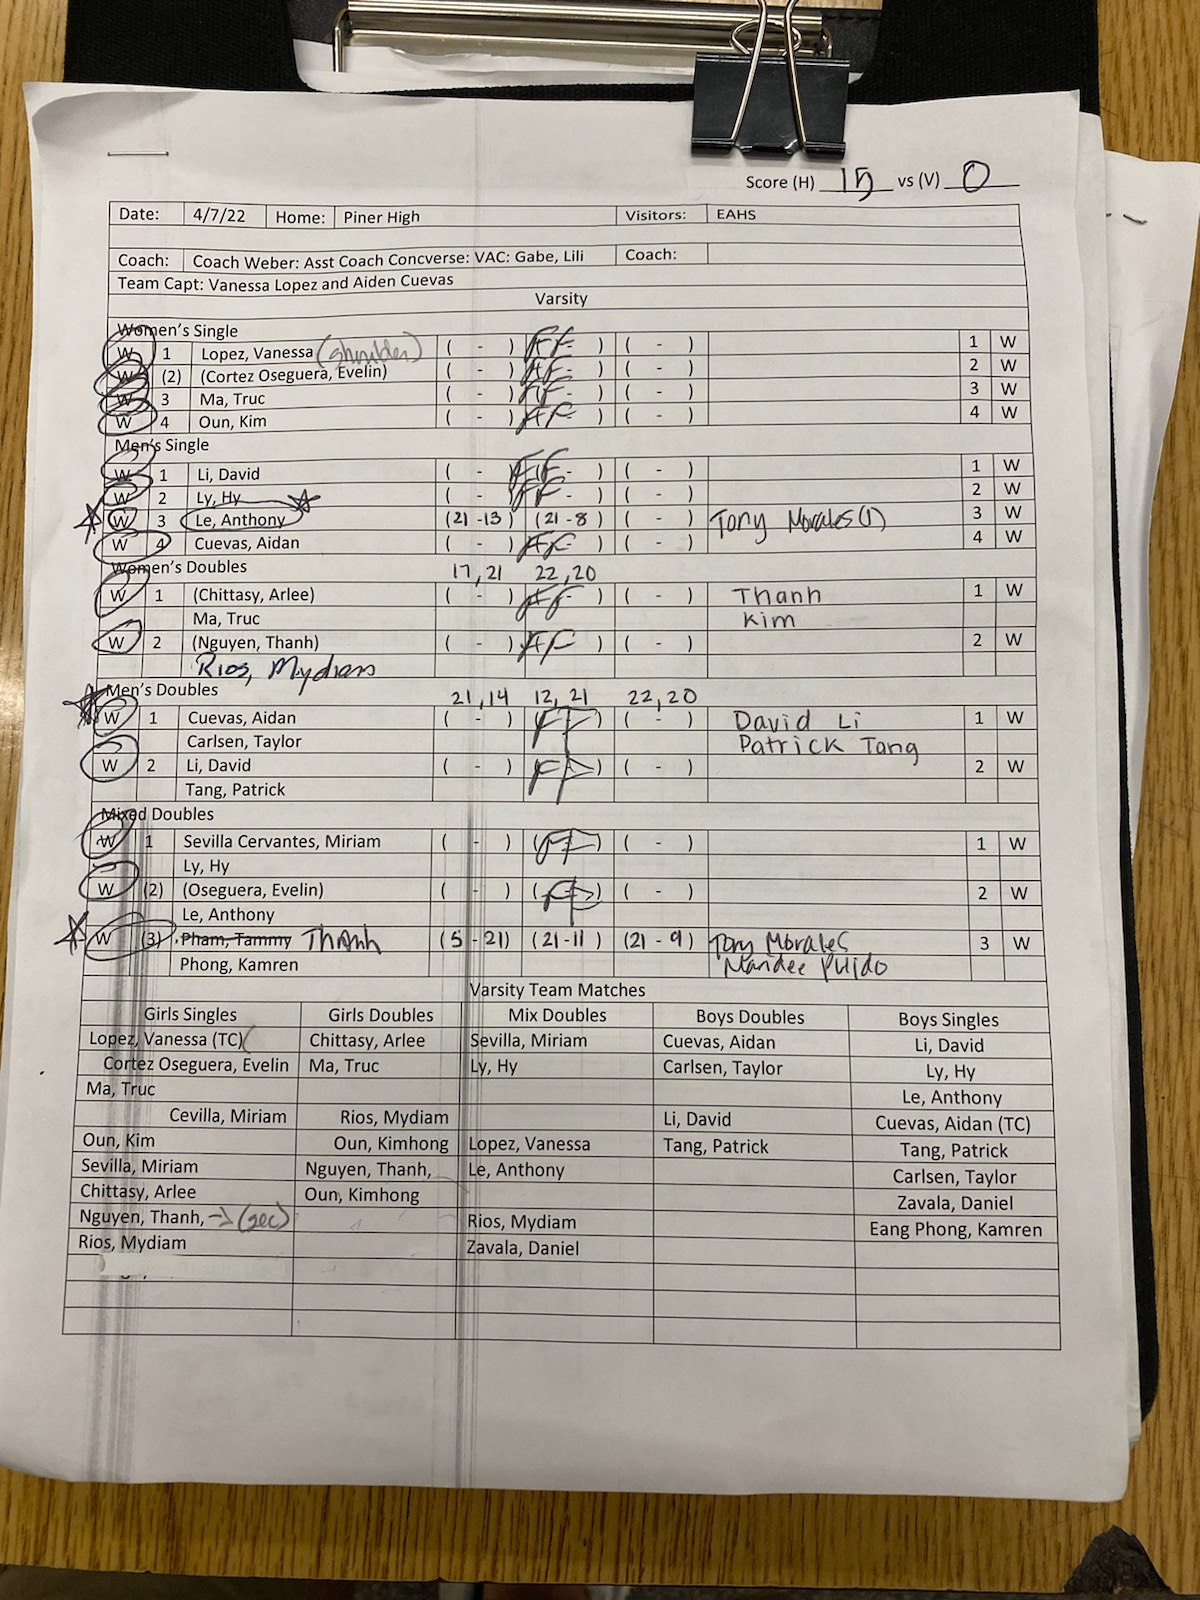 Score (H) 15 vs (V) 0
Date: 4/7/22 Home: Piner High Visitors: EAHS
Coach: Coach Weber: Asst Coach Concverse: VAC: Gabe, Lili Coach:
Team Capt: Vanessa Lopez and Aiden Cuevas
Varsity
Women's Single
W 1 Lopez, Vanessa (shoulder) ( - ) FF ( - ) ( - ) 1 W
W (2) (Cortez Oseguera, Evelin) ( - ) FF ( - ) ( - ) 2 W
W 3 Ma, Truc ( - ) FF ( - ) ( - ) 3 W
W 4 Oun, Kim ( - ) FF ( - ) ( - ) 4 W
Men's Single
W 1 Li, David ( - ) FF ( - ) ( - ) 1 W
W 2 Ly, Hy ( - ) FF ( - ) ( - ) 2 W
W 3 Le, Anthony (21 - 13) (21 - 8) ( - ) Tony Morales (1) 3 W
W 4 Cuevas, Aidan ( - ) FF ( - ) ( - ) 4 W
Women's Doubles 17, 21 22, 20
W 1 (Chittasy, Arlee) ( - ) FF ( - ) ( - ) Thanh 1 W
Ma, Truc Kim
W 2 (Nguyen, Thanh) ( - ) FF ( - ) ( - ) 2 W
Rios, Mydiam
Men's Doubles 21, 14 12, 21 22, 20
W 1 Cuevas, Aidan ( - ) FF ( - ) David Li 1 W
Carlsen, Taylor Patrick Tang
W 2 Li, David ( - ) FF ( - ) 2 W
Tang, Patrick
Mixed Doubles
W 1 Sevilla Cervantes, Miriam ( - ) (FF) ( - ) 1 W
Ly, Hy
W (2) (Oseguera, Evelin) ( - ) (FF) ( - ) 2 W
Le, Anthony
W (3) Pham, Tammy Thanh (5 - 21) (21 - 11) (21 - 9) Tony Morales 3 W
Phong, Kamren Mandee Pulido
Varsity Team Matches
Girls Singles Girls Doubles Mix Doubles Boys Doubles Boys Singles
Lopez, Vanessa (TC) Chittasy, Arlee Sevilla, Miriam Cuevas, Aidan Li, David
Cortez Oseguera, Evelin Ma, Truc Ly, Hy Carlsen, Taylor Ly, Hy
Ma, Truc Le, Anthony
Cevilla, Miriam Rios, Mydiam Li, David Cuevas, Aidan (TC)
Oun, Kim Oun, Kimhong Lopez, Vanessa Tang, Patrick Tang, Patrick
Sevilla, Miriam Nguyen, Thanh, Le, Anthony Carlsen, Taylor
Chittasy, Arlee Oun, Kimhong Zavala, Daniel
Nguyen, Thanh, → (sec) Rios, Mydiam Eang Phong, Kamren
Rios, Mydiam Zavala, Daniel